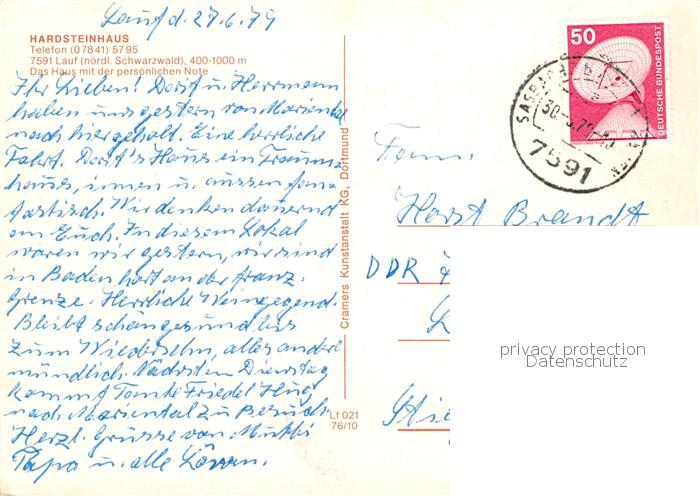 Lauf d. 27.6.79
HARDSTEINHAUS
Telefon (07841) 5795
7591 Lauf (nördl. Schwarzwald), 400-1000 m
Das Haus mit der persönlichen Note
Ihr Lieben! Dorit u. Herrmann
haben uns gestern von Mariental
nach hier geholt. Eine herrliche
Fahrt. Dorit's Haus ein Traum-
haus, innen u. aussen fan-
tastisch. Wir denken dauernd
an Euch. In diesem Lokal
waren wir gestern, wir sind
in Baden hart an der franz.
Grenze. Herrliche Weingegend.
Bleibt schön gesund bis
zum Wiedersehn, alles andere
mündlich. Nächsten Dienstag
kommt Tante Friedel Hug
nach Mariental zu Besuch.
Herzl. Grüsse von Mutti
Papa u. alle Löwen.
Cramers Kunstanstalt KG, Dortmund
Lf 021
76/10
50
DEUTSCHE BUNDESPOST
SASBACH
7591
Fam.
Horst Brandt
DDR
privacy protection
Datenschutz